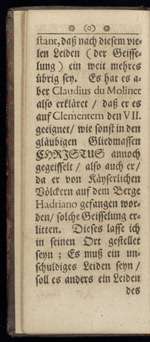 ❧ (o) ❧
stant, daß nach diesem vie-
len Leiden (der Geisse-
lung) ein weit mehres
übrig sey. Es hat es a-
ber Claudius du Molinet
also erkläret / daß er es
auf Clementem den VII.
geeignet / wie sonst in den
gläubigen Gliedmassen
CHRISTUS annoch
gegeisselt / also auch er /
da er von Käyserlichen
Völckern auf dem Berge
Hadriano gefangen wor-
den / solche Geisselung er-
litten. Dieses lasse ich
in seinen Ort gestellet
seyn ; Es muß ein un-
schuldiges Leiden seyn /
soll es anders ein Leiden
des